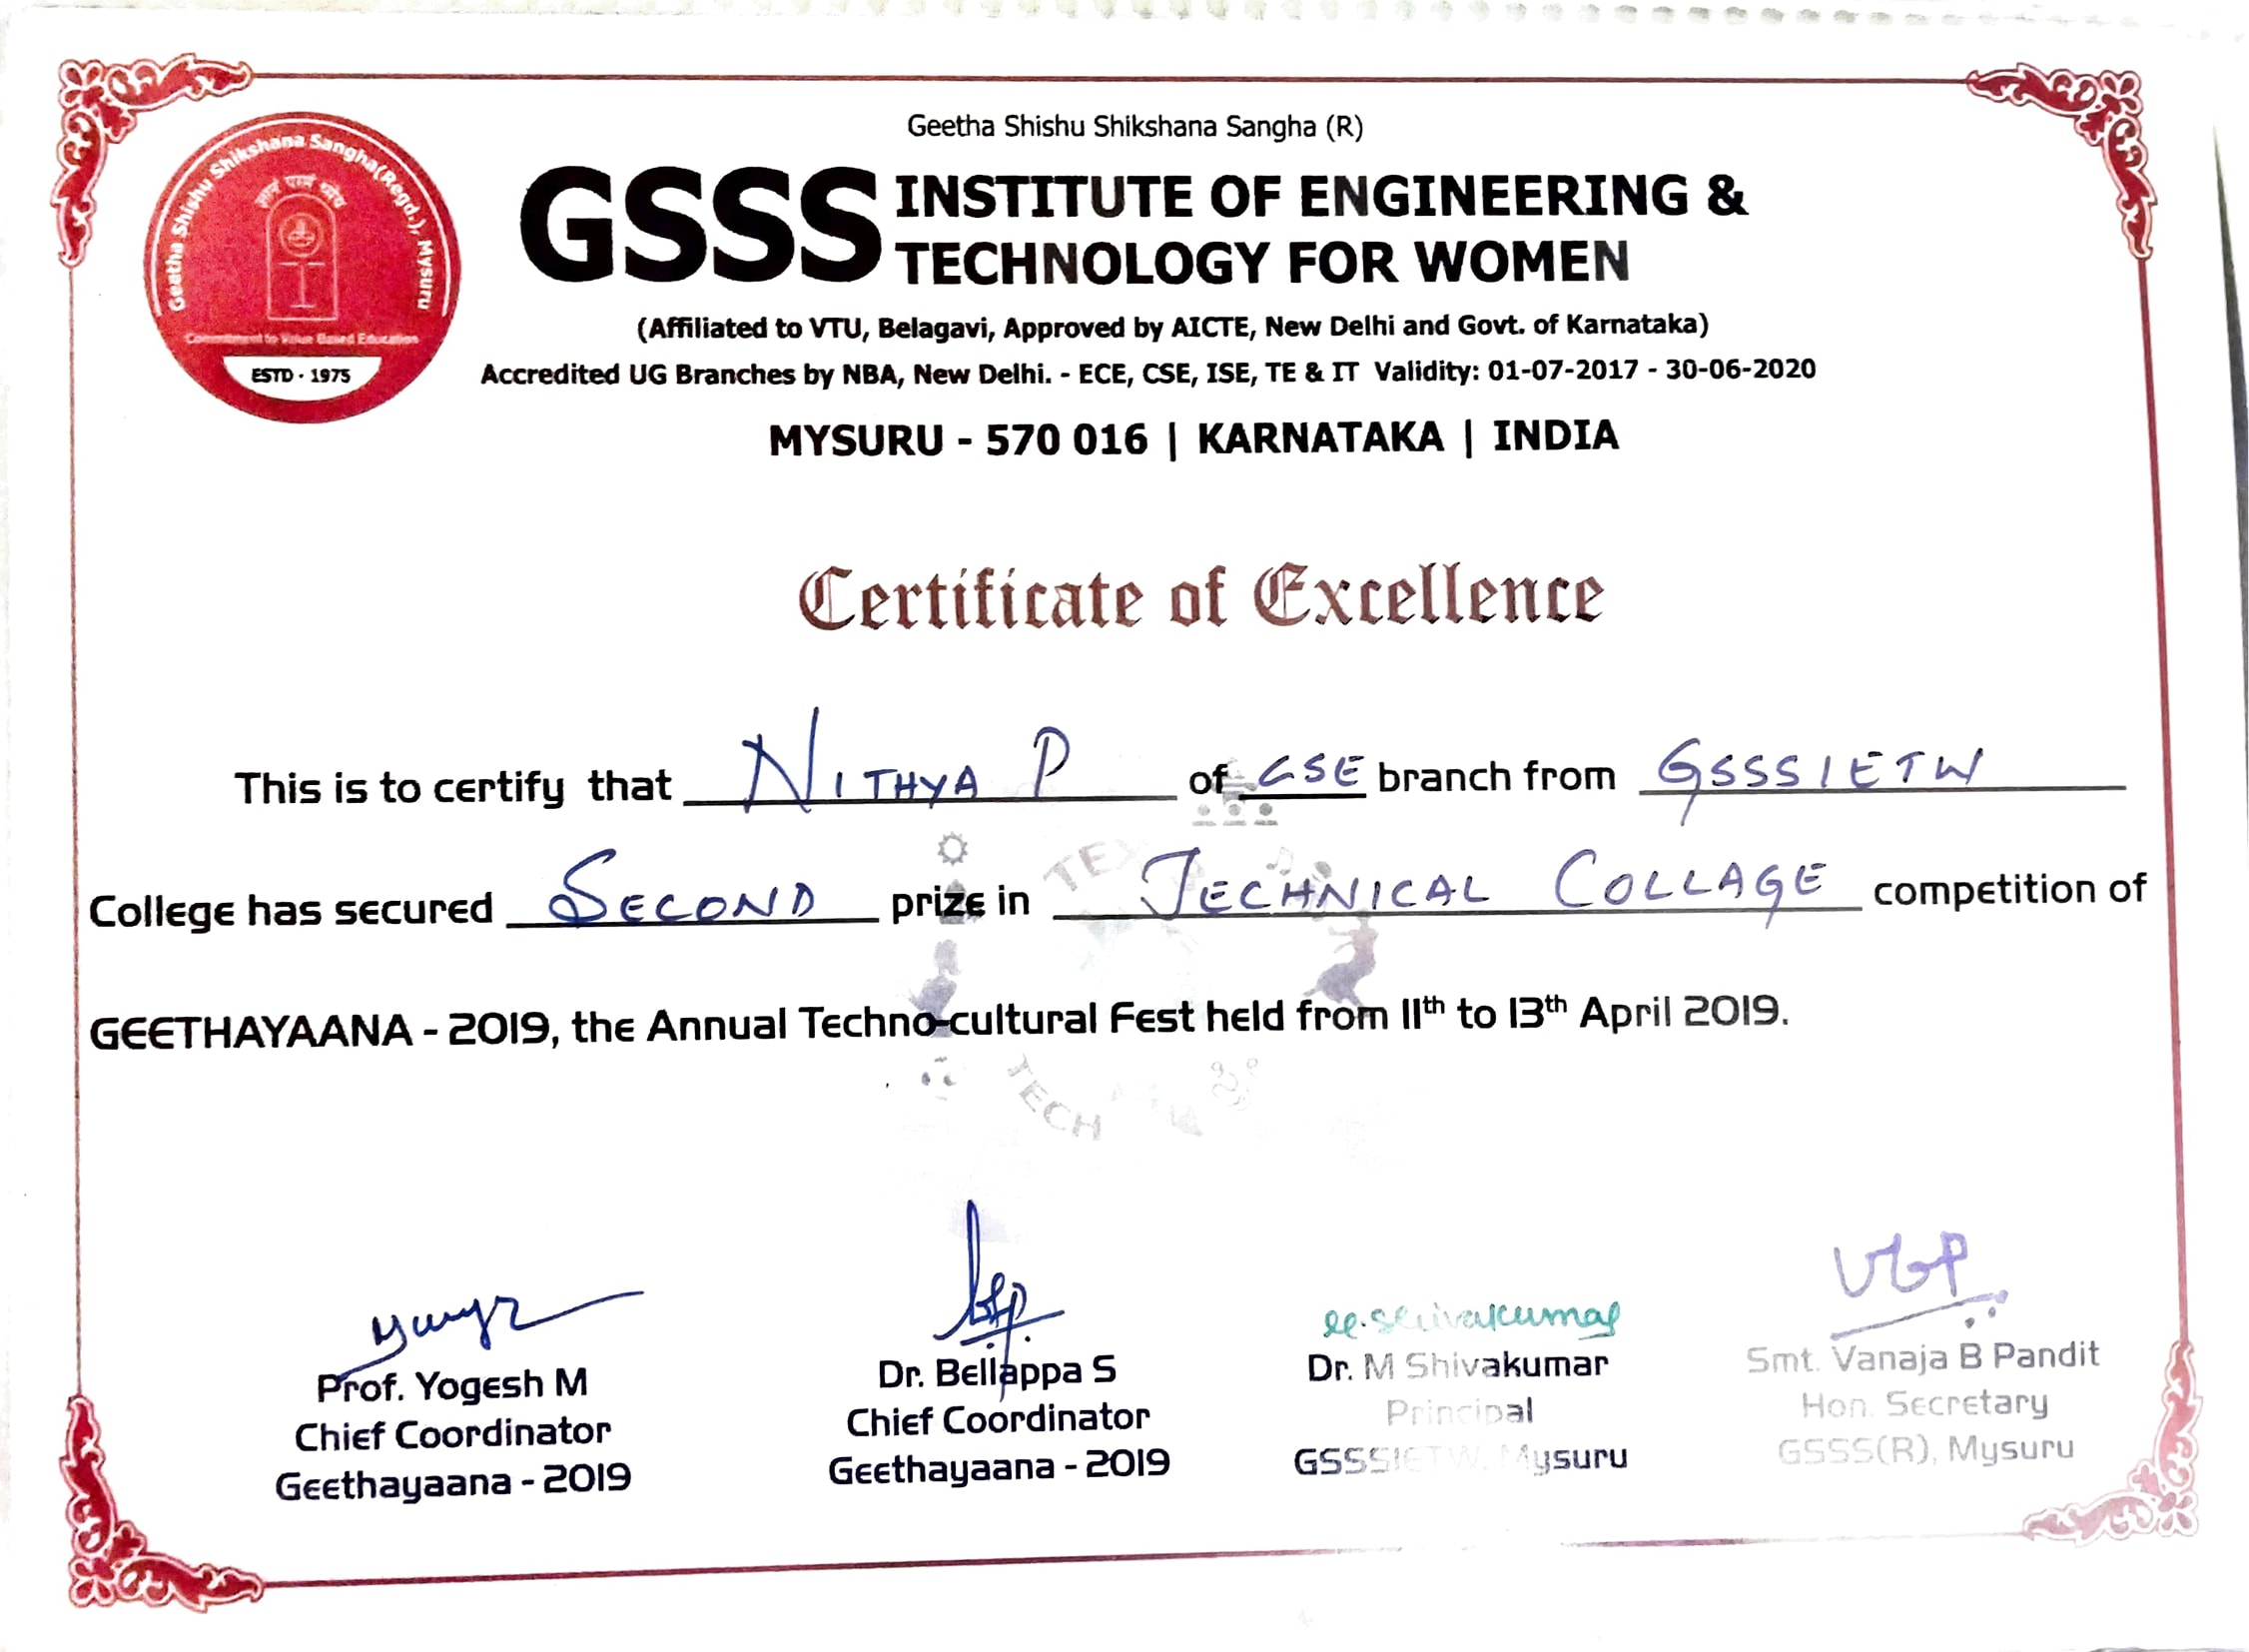 Geetha Shishu Shikshana Sangha(Regd.), Mysuru
Commitment to Value Based Education
ESTD · 1975
Geetha Shishu Shikshana Sangha (R)
GSSS INSTITUTE OF ENGINEERING &
TECHNOLOGY FOR WOMEN
(Affiliated to VTU, Belagavi, Approved by AICTE, New Delhi and Govt. of Karnataka)
Accredited UG Branches by NBA, New Delhi. - ECE, CSE, ISE, TE & IT Validity: 01-07-2017 - 30-06-2020
MYSURU - 570 016 | KARNATAKA | INDIA
Certificate of Excellence
This is to certify that NITHYA P of CSE branch from GSSSIETW
College has secured SECOND prize in TECHNICAL COLLAGE competition of
GEETHAYAANA - 2019, the Annual Techno-cultural Fest held from 11th to 13th April 2019.
TECH
M.Shivakumar
VGP
Prof. Yogesh M
Chief Coordinator
Geethayaana - 2019
Dr. Bellappa S
Chief Coordinator
Geethayaana - 2019
Dr. M Shivakumar
Principal
GSSSIETW, Mysuru
Smt. Vanaja B Pandit
Hon. Secretary
GSSS(R), Mysuru